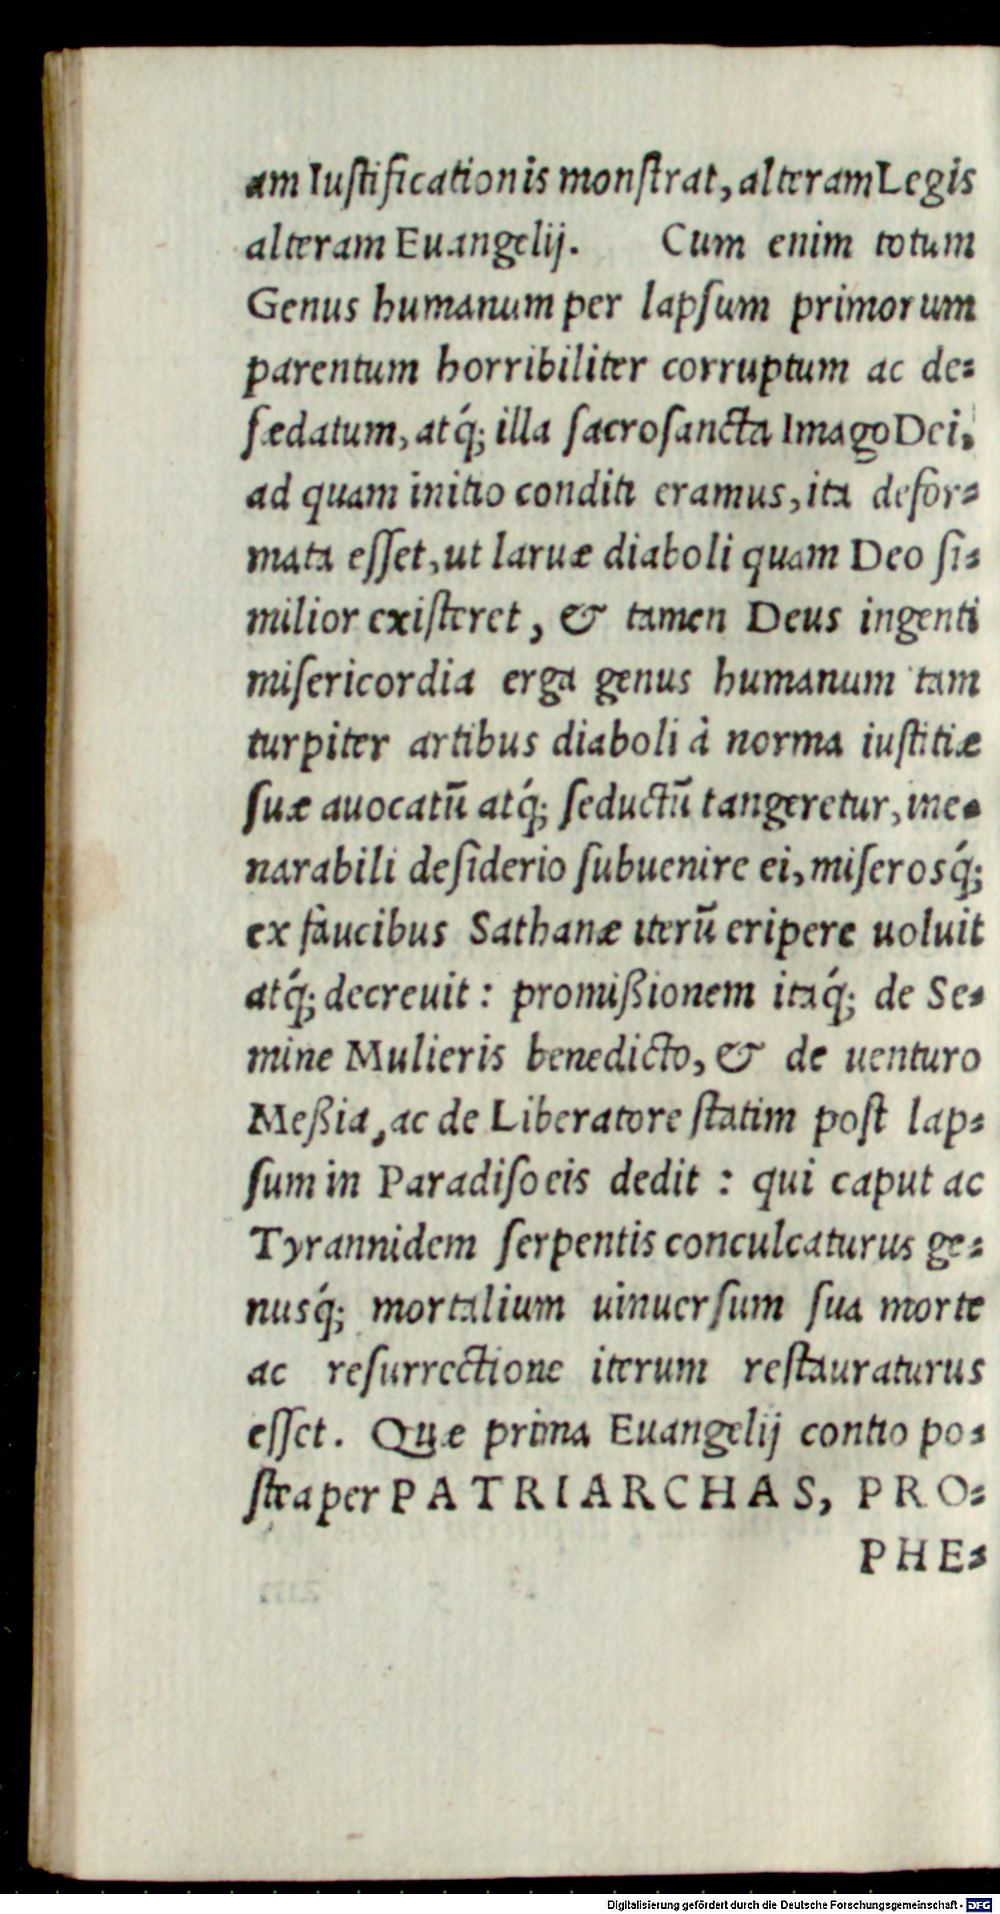 am Iuſtificationis monſtrat, alteram Legis
alteram Euangelij. Cum enim totum
Genus humanum per lapſum primorum
parentum horribiliter corruptum ac de⸗
fædatum, atq́; illa ſacroſancta Imago Dei,
ad quam initio conditi eramus, ita defor⸗
mata eſſet, ut laruæ diaboli quam Deo ſi⸗
milior exiſteret, & tamen Deus ingenti
miſericordia erga genus humanum tam
turpiter artibus diaboli à norma iuſtitiæ
ſuæ auocatũ atq́; ſeductũ tangeretur, ine⸗
narabili deſiderio ſubuenire ei, miſerosq́;
ex faucibus Sathanæ iterũ eripere uoluit
atq́; decreuit: promißionem itaq́; de Se⸗
mine Mulieris benedicto, & de uenturo
Meßia, ac de Liberatore ſtatim poſt lap⸗
ſum in Paradiſo eis dedit: qui caput ac
Tyrannidem ſerpentis conculcaturus ge⸗
nusq́; mortalium uinuerſum ſua morte
ac reſurrectione iterum reſtauraturus
eſſet. Quæ prima Euangelij contio po⸗
ſtea per PATRIARCHAS, PRO⸗
PHE⸗
Digitalisierung gefördert durch die Deutsche Forschungsgemeinschaft - DFG